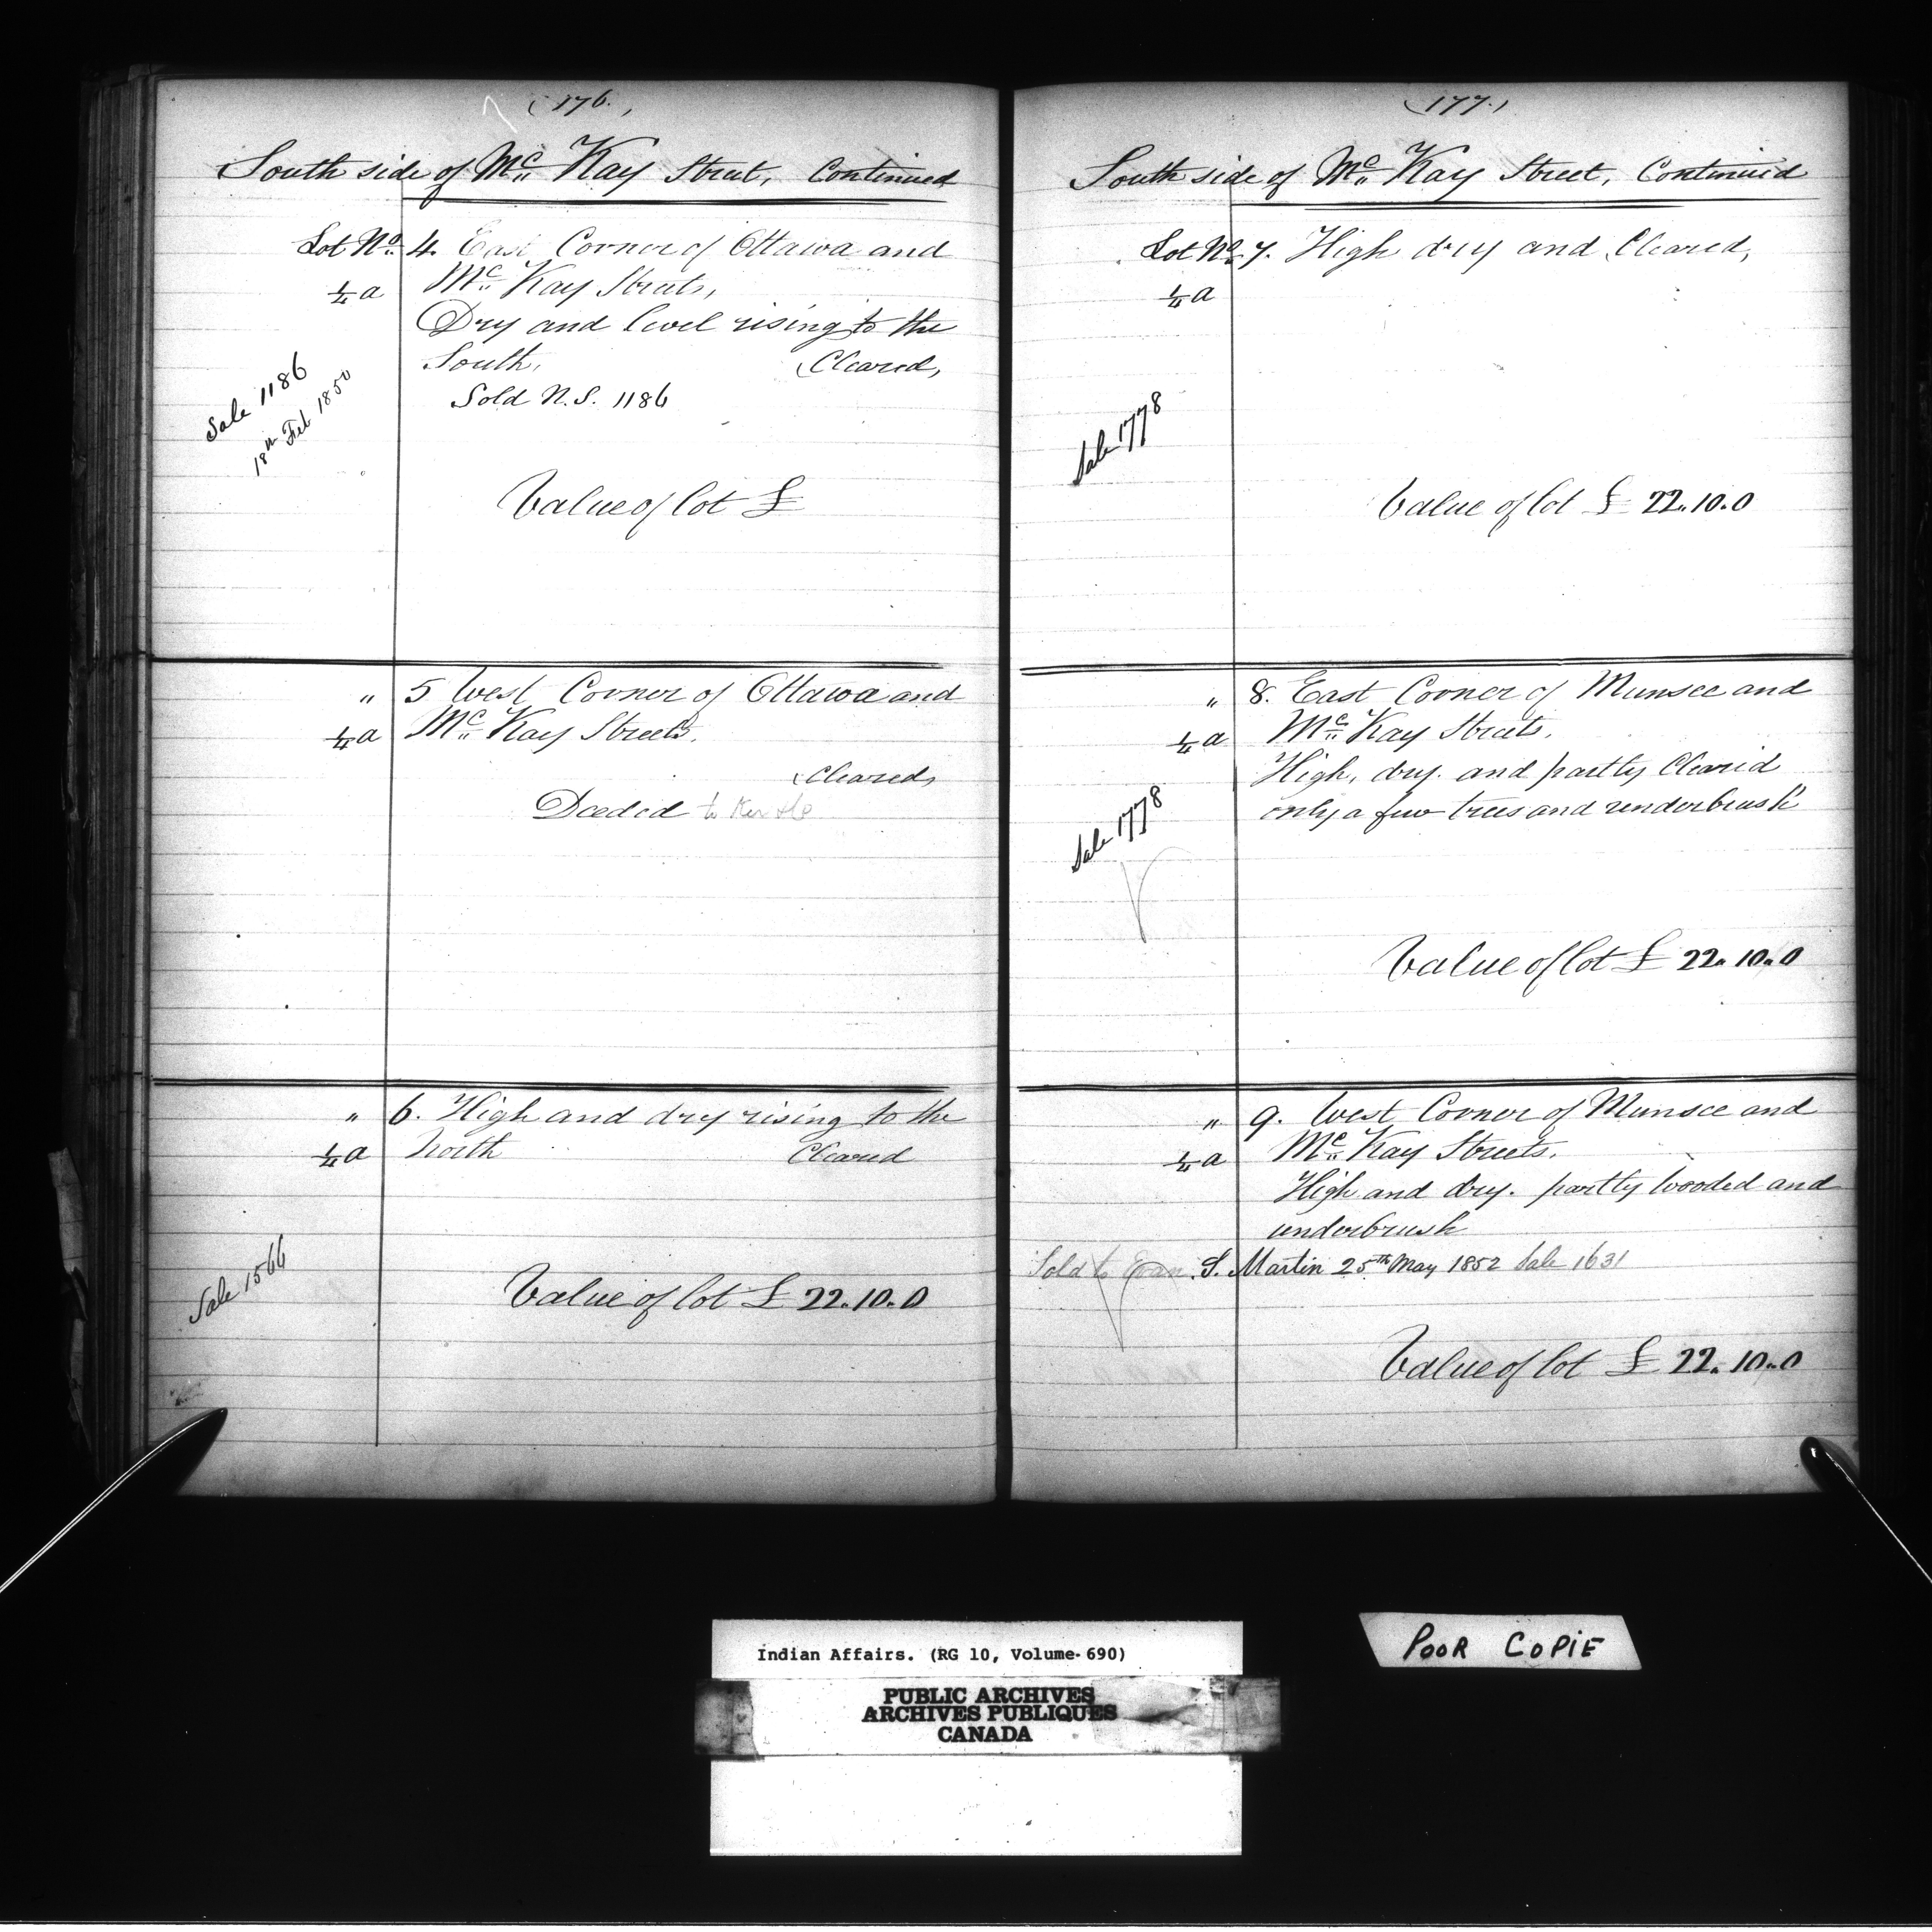 (176.)
South side of Mc Kay Street, Continued
Lot No. 4. East Corner of Ottawa and
1/4 a Mc Kay Streets,
Dry and level rising to the
South, Cleared,
Sold N.S. 1186
Sale 1186
18th Feb 1850
Value of lot £
" 5 West Corner of Ottawa and
1/4 a Mc Kay Streets.
Cleared,
Deeded to
" 6. High and dry rising to the
1/4 a North Cleared
Sale 1566
Value of lot £ 22.10.0
(177.)
South side of Mc Kay Street, Continued
Lot No. 7. High dry and Cleared,
1/4 a
Sale 1778
Value of lot £ 22.10.0
" 8. East Corner of Munsee and
1/4 a Mc Kay Streets.
High, dry. and partly Cleared
only a few trees and underbrush
Sale 1778
Value of lot £ 22.10.0
" 9. West Corner of Munsee and
1/4 a Mc Kay Streets.
High and dry. partly wooded and
underbrush
Sold to Evan. S. Martin 25th May 1852 Sale 1631
Value of lot £ 22.10.0
Indian Affairs. (RG 10, Volume 690)
PUBLIC ARCHIVES
ARCHIVES PUBLIQUES
CANADA
POOR COPIE